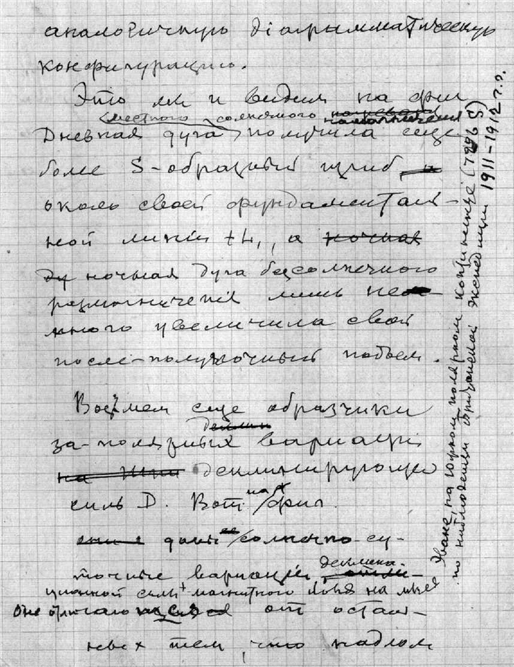 аналогичную діаграмматическую
конфигурацию.
Это мы и видим на фиг
местного солнечного намагничения
Дневная дуга получила еще
более S-образный изгиб, и
около своей фундаменталь-
ной линіи tL₁, а ночная
ду ночная дуга безсолнечного
размагниченія лишь не
много увеличила свой
после-полуночный подъем.
Возьмем еще образчики
за-полярных варіацій
на деклинирующей
силы D. Вот на фиг.
даны ее солнечно-су-
точные варіаціи деклина-
ціонной силы магнитного поля на мысе
Оне отличаются от осталь-
ных тем, что надлом
Эванс, на южном полярном континенте (77°6 S)
по наблюдениям Британской Экспедиции 1911-1912 г.г.